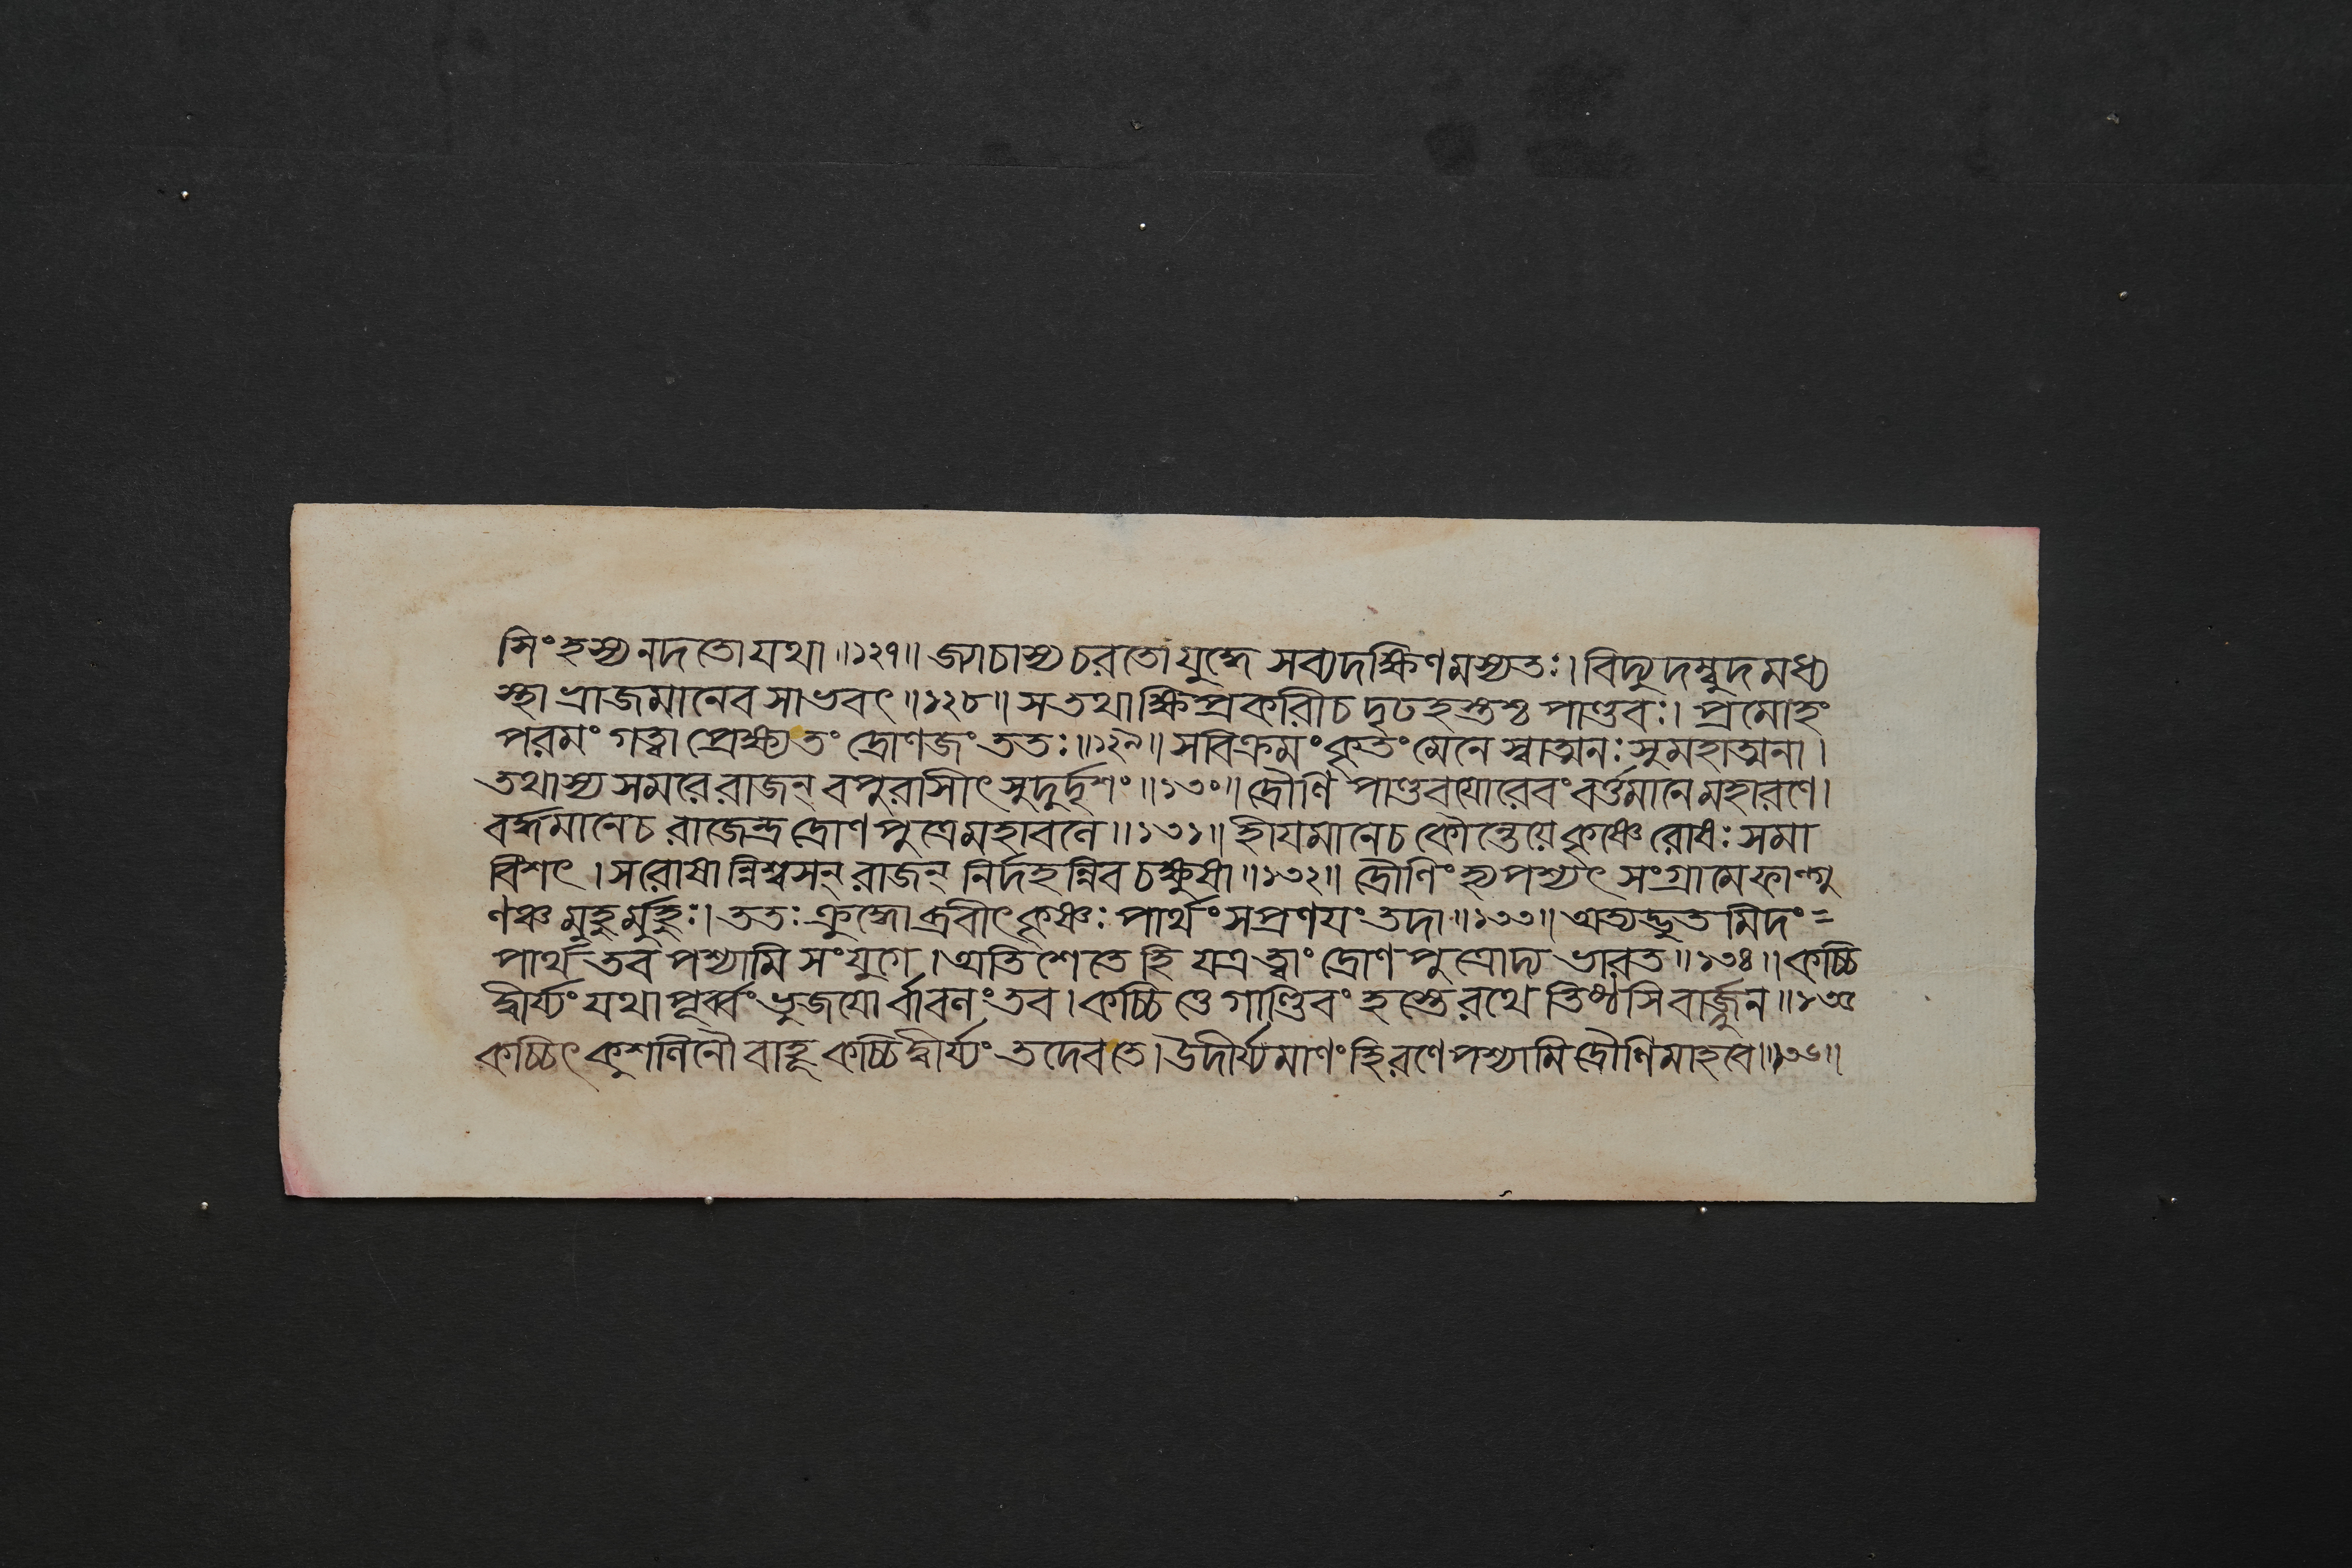 সিংহস্য নদতো যথা॥১২৭॥ জ্যাচাস্য চরতো যুদ্ধে সব্যদক্ষিণমস্যতঃ। বিদ্যুদম্বুদমধ্য
স্থা ভ্রাজমানেব সাভবৎ॥১২৮॥ স তথা ক্ষিপ্রকারী চ দৃঢহস্তশ্চ পাণ্ডবঃ। প্রমোহং
পরমং গত্বা প্রেক্ষ্য তং দ্রোণজং ততঃ॥১২৯॥ স বিক্রমং কৃতং মেনে স্বাত্মনঃ সুমহাত্মনা।
তথাস্য সমরে রাজন্ বপুরাসীৎ সুদুর্দৃশং॥১৩০॥ দ্রৌণি পাণ্ডবযোরেবং বর্ত্তমানে মহারণে।
বর্দ্ধমানে চ রাজেন্দ্র দ্রোণপুত্রে মহাবনে॥১৩১॥ হীযমানে চ কৌন্তেয়ে কৃষ্ণে রোষঃ সমা
বিশৎ। স রোষান্নিশ্বসন্ রাজন্ নির্দহন্নিব চক্ষুষা॥১৩২॥ দ্রৌণিং হ্যপশ্যৎ সংগ্রামে ফাল্গু
ণঞ্চ মুহুর্মুহুঃ। ততঃ ক্রুদ্ধোব্রবীৎ কৃষ্ণঃ পার্থং সপ্রণযং তদা॥১৩৩॥ অত্যদ্ভুতমিদং =
পার্থ তব পশ্যামি সংযুগে। অতিশেতে হি যত্র ত্বাং দ্রোণপুত্রোদ্য ভারত॥১৩৪॥ কচ্চি
দ্বীর্য্যং যথাপূর্ব্বং ভুজযোর্বাবনং তব। কচ্চিত্তে গাণ্ডিবং হস্তে রথে তিষ্ঠসি বার্জ্জুন॥১৩৫
কচ্চিৎ কুশলিনৌ বাহূ কচ্চিদ্বীর্য্যং তদেব তে। উদীর্য্যমাণং হি রণে পশ্যামি দ্রৌণিমাহবে॥১৩৬॥